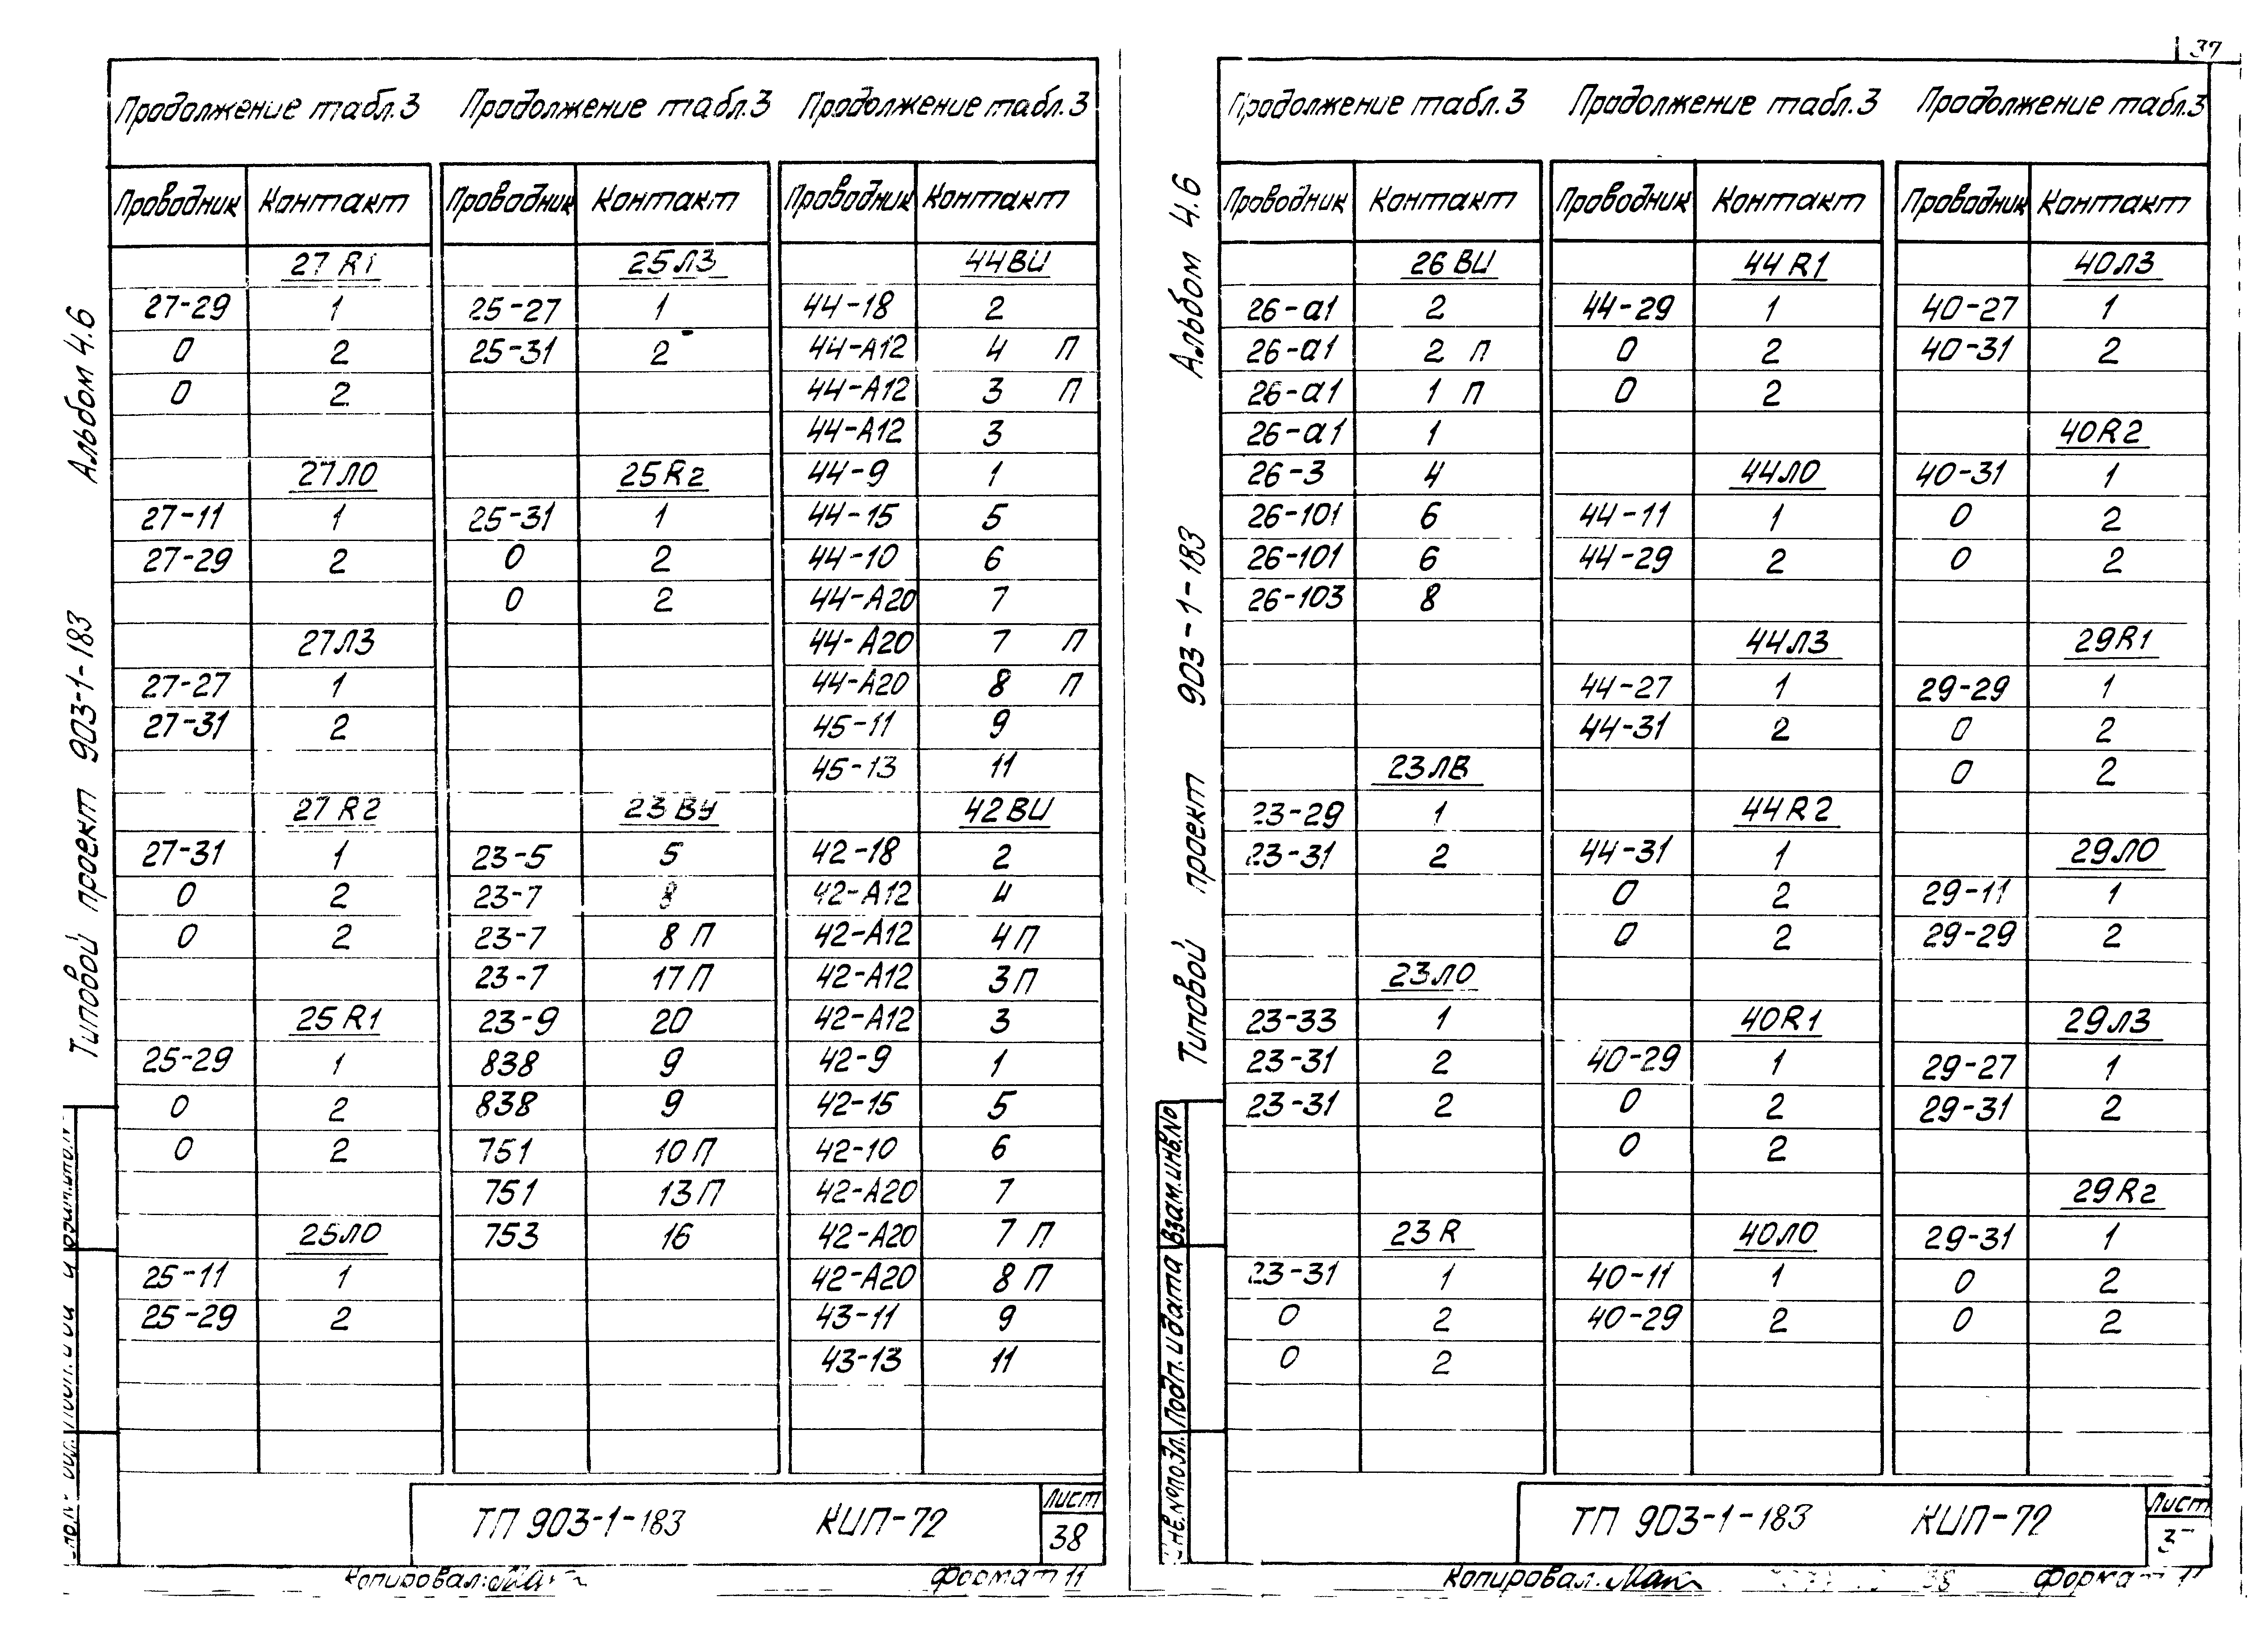 37
Альбом 4.6
Типовой проект 903-1-183
Продолжение табл.3
Проводник Контакт
27R1
27-29 1
0 2
0 2
27ЛО
27-11 1
27-29 2
27ЛЗ
27-27 1
27-31 2
27R2
27-31 1
0 2
0 2
25R1
25-29 1
0 2
0 2
25ЛО
25-11 1
25-29 2
Продолжение табл.3
Проводник Контакт
25ЛЗ
25-27 1
25-31 2
25R2
25-31 1
0 2
0 2
23ВУ
23-5 5
23-7 8
23-7 8П
23-7 17П
23-9 20
838 9
838 9
751 10П
751 13П
753 16
Продолжение табл.3
Проводник Контакт
44ВИ
44-18 2
44-А12 4 П
44-А12 3 П
44-А12 3
44-9 1
44-15 5
44-10 6
44-А20 7
44-А20 7 П
44-А20 8 П
45-11 9
45-13 11
42ВИ
42-18 2
42-А12 4
42-А12 4П
42-А12 3П
42-А12 3
42-9 1
42-15 5
42-10 6
42-А20 7
42-А20 7 П
42-А20 8 П
43-11 9
43-13 11
ТП 903-1-183 КИП-72
Лист
38
Копировал:
Формат 11
Альбом 4.6
Типовой проект 903-1-183
Взам.инв.№
Подп. и дата
Инв.№подл.
Продолжение табл.3
Проводник Контакт
26ВИ
26-а1 2
26-а1 2 П
26-а1 1 П
26-а1 1
26-3 4
26-101 6
26-101 6
26-103 8
23ЛВ
23-29 1
23-31 2
23ЛО
23-33 1
23-31 2
23-31 2
23R
23-31 1
0 2
0 2
Продолжение табл.3
Проводник Контакт
44R1
44-29 1
0 2
0 2
44ЛО
44-11 1
44-29 2
44ЛЗ
44-27 1
44-31 2
44R2
44-31 1
0 2
0 2
40R1
40-29 1
0 2
0 2
40ЛО
40-11 1
40-29 2
Продолжение табл.3
Проводник Контакт
40ЛЗ
40-27 1
40-31 2
40R2
40-31 1
0 2
0 2
29R1
29-29 1
0 2
0 2
29ЛО
29-11 1
29-29 2
29ЛЗ
29-27 1
29-31 2
29R2
29-31 1
0 2
0 2
ТП 903-1-183 КИП-72
Лист
Копировал:
Формат 11